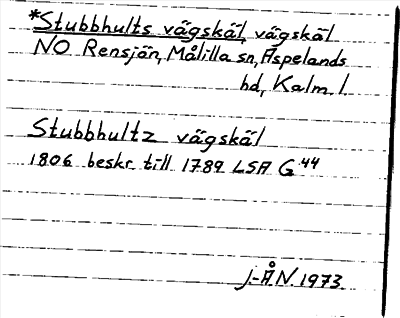 *Stubbhults vägskäl, vägskäl
NO Rensjön, Målilla sn, Aspelands
hd, Kalm. l.
Stubbhultz vägskäl
1806 beskr. till 1789 LSA G 44
J.-Å N. 1973